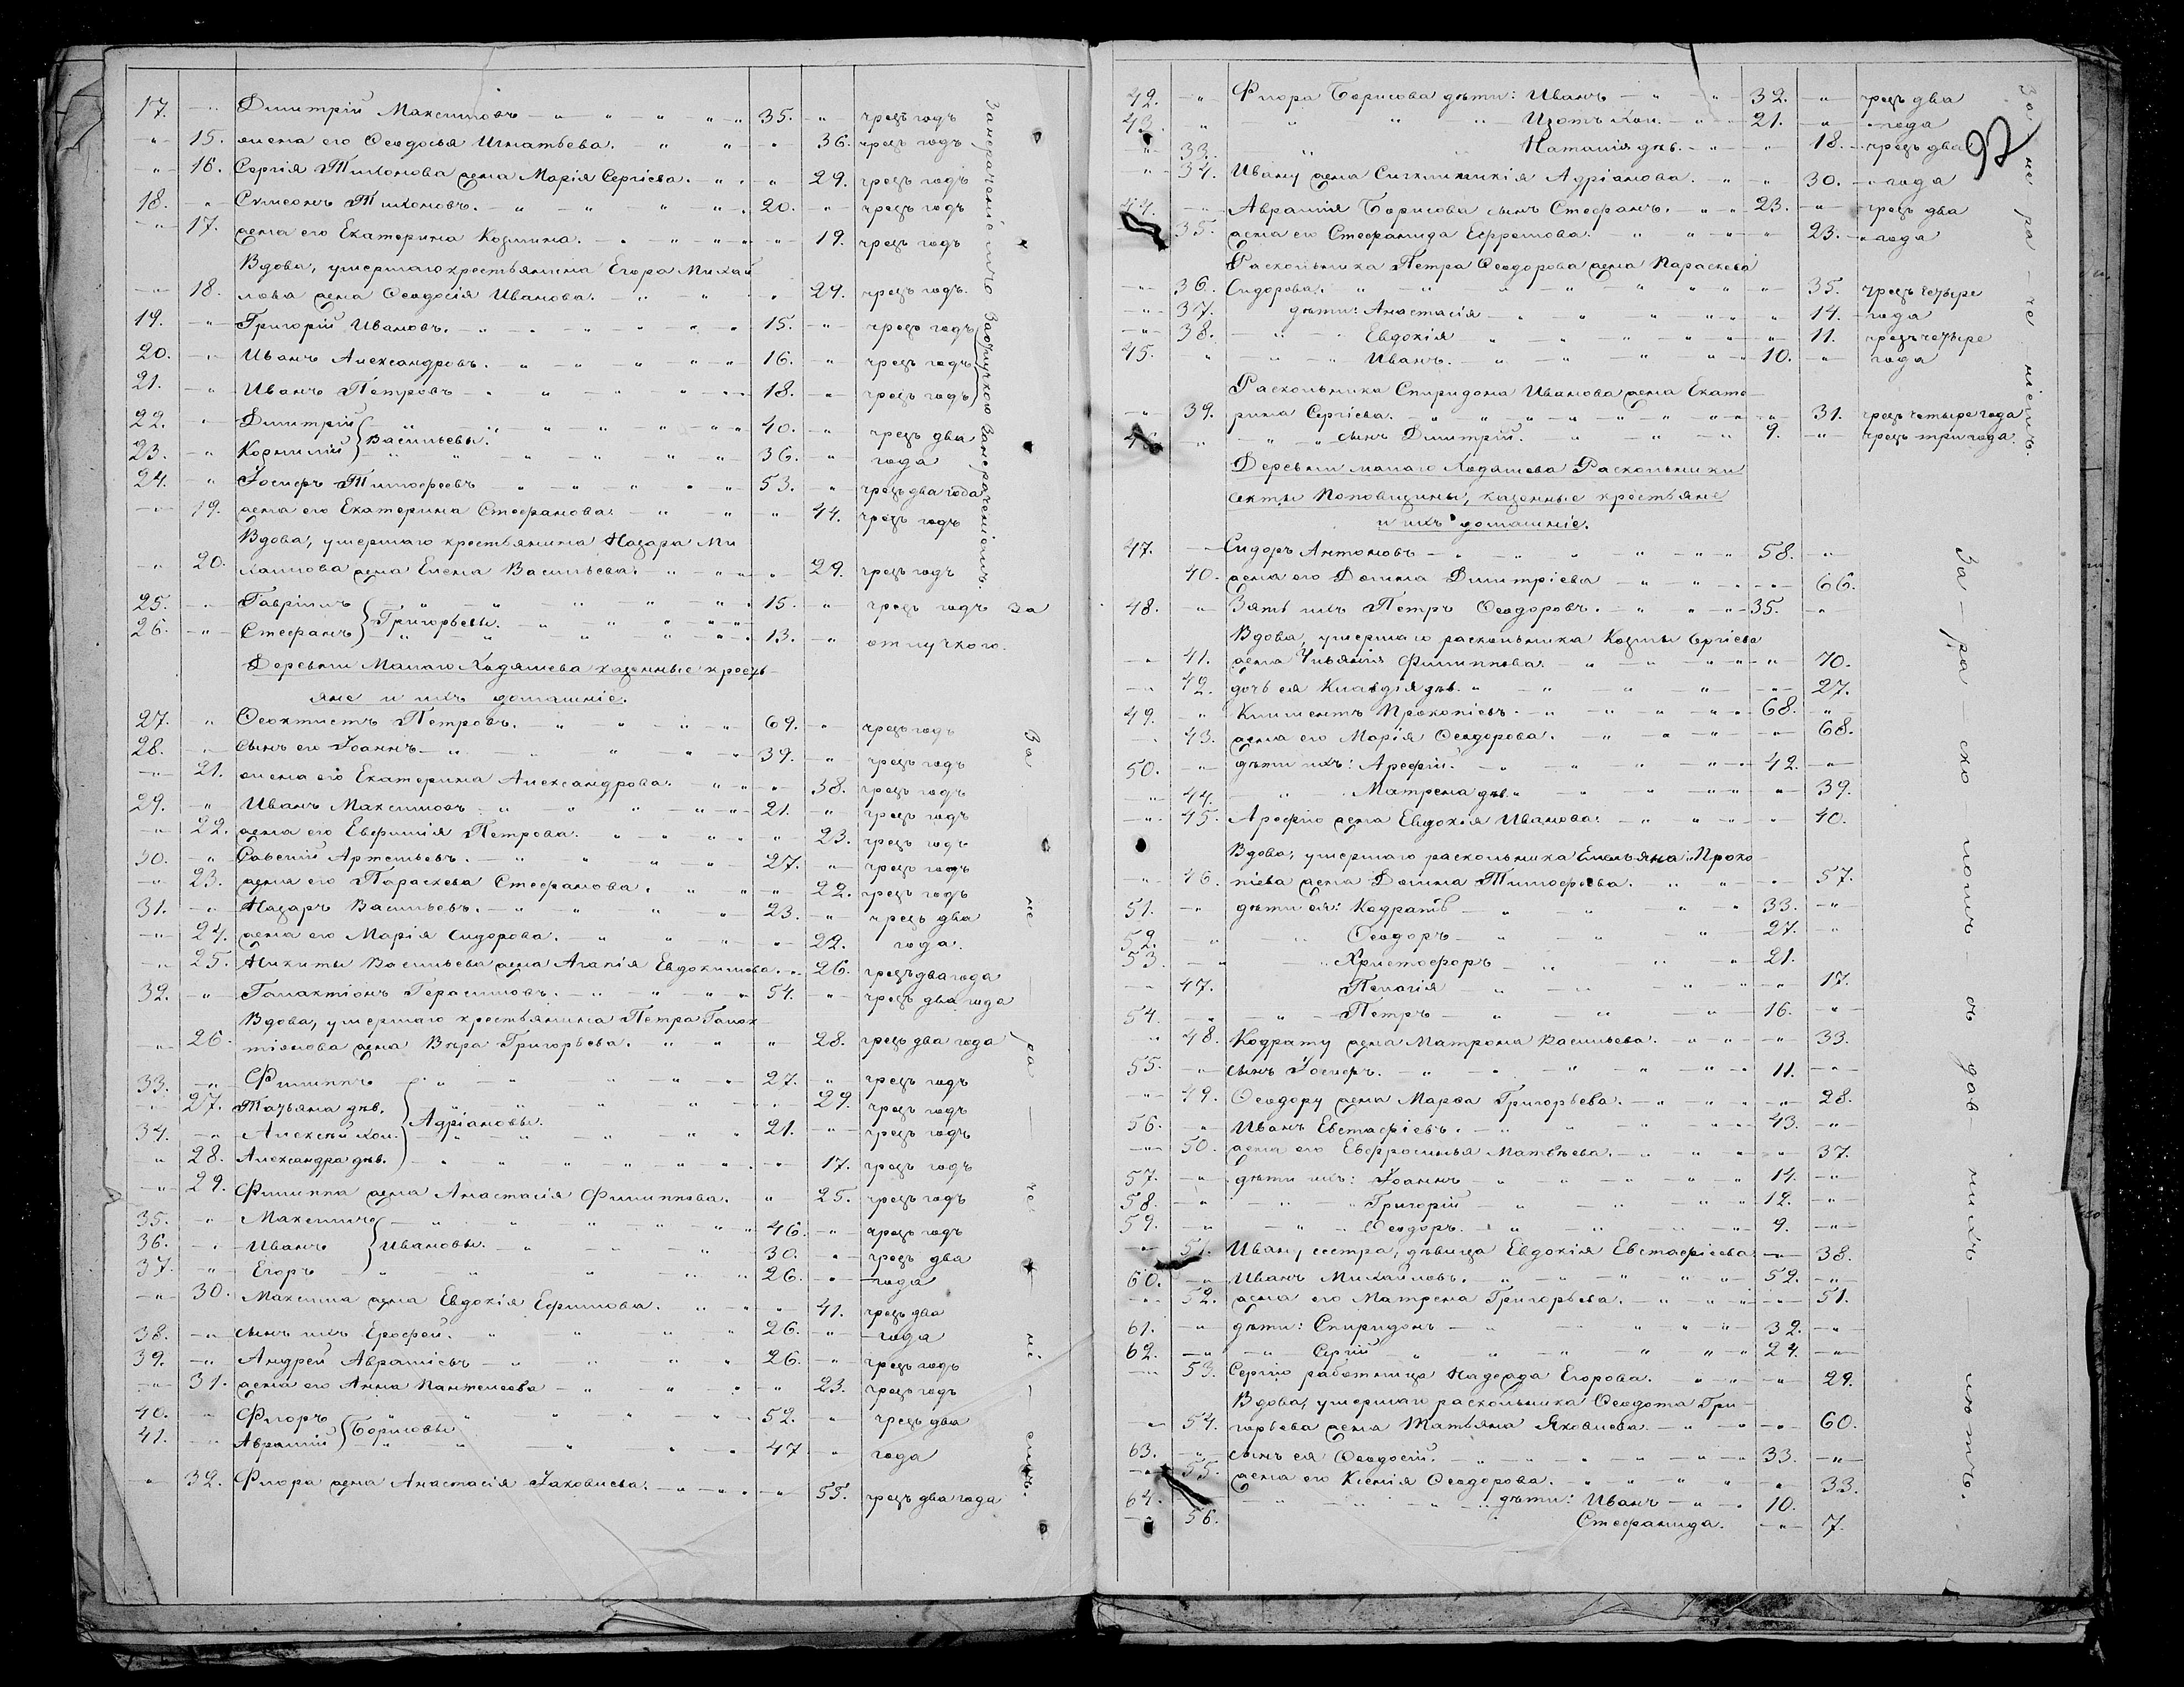 17. Димитрій Максимовъ 35. чрезъ годъ
15. жена его Ѳеодосья Игнатьева. 36. чрезъ годъ
16. Сергія Тихонова жена Марія Сергіева. 29. чрезъ годъ
18. Симеонъ Тихоновъ. 20. чрезъ годъ
17. жена его Екатерина Козмина. 19. чрезъ годъ
Вдова, умершаго крестьянина Егора Михай
18. лова жена Ѳеодосія Иванова. 29. чрезъ годъ.
19. Григорій Ивановъ. 15. чрезъ годъ
20. Иванъ Александровъ. 16. чрезъ годъ
21. Иванъ Петровъ 18. чрезъ годъ
22. Димитрій 40. чрезъ два
Васильевы.
23. Корнилій 36. года
24. Іосифъ Тимофеевъ 53. чрезъ два года
19. жена его Екатерина Стефанова. 44. чрезъ годъ
Вдова, умершаго крестьянина Назара Ми
20. хайлова жена Елена Васильева. 29. чрезъ годъ
25. Гавріилъ 15. чрезъ годъ за
Григорьевы.
26. Стефанъ 13. отлучкою.
Деревни Малаго Ходяшева казенные кресть-
яне и ихъ домашніе.
27. Ѳеоктистъ Петровъ. 69. чрезъ годъ
28. сынъ его Іоаннъ 39. чрезъ годъ
21. жена его Екатерина Александрова. 38. чрезъ годъ
29. Иванъ Максимовъ 21. чрезъ годъ
22. жена его Евфимія Петрова. 23. чрезъ годъ
30. Савелій Артемьевъ. 27. чрезъ годъ
23. жена его Параскева Стефанова. 22. чрезъ годъ
31. Назаръ Васильевъ. 23. чрезъ два
24. жена его Марія Сидорова. 22. года.
25. Никиты Васильева жена Агапія Евдокимова. 26. чрезъ два года
32. Галактіонъ Герасимовъ. 54. чрезъ два года
Вдова, умершаго крестьянина Петра Галак
26. тіонова жена Вѣра Григорьева. 28. чрезъ два года
33. Филиппъ 27. чрезъ годъ
27. Татьяна двв. 29. чрезъ годъ
Адріановы.
34. Алексѣй хол. 21. чрезъ годъ
28. Александра двв. 17. чрезъ годъ
29. Филиппа жена Анастасія Филиппова. 25. чрезъ годъ
35. Максимъ 46. чрезъ годъ
36. Иванъ Ивановы. 30. чрезъ два
37. Егоръ 26. года
30. Максима жена Евдокія Ефимова. 41. чрезъ два
38. сынъ ихъ Ерофей. 26. года
39. Андрей Авраміевъ 26. чрезъ годъ
31. жена его Анна Пантелеева 23. чрезъ годъ
40. Флоръ 52. чрезъ два
Борисовы
41. Аврамій 47 года
32. Флора жена Анастасія Іаковлева. 55. чрезъ два года
За нераченіемъ
За отлучкою За нераченіемъ.
За не ра че ні емъ.
42. Флора Борисова дѣти: Иванъ 32. чрезъ два
43. Изотъ хол. 21. года
33. Наталія двв. 18. чрезъ два
34. Ивану жена Сигклитикія Адріанова. 30. года
44. Аврамія Борисова сынъ Стефанъ. 23. чрезъ два
35. жена его Стефанида Ефремова. 23. года
Раскольника Петра Ѳеодорова жена Параскева
36. Сидорова. 35. чрезъ четыре
37. дѣти: Анастасія 14. года
38. Евдокія 11. чрезъ четыре
45. Иванъ. 10. года
Раскольника Спиридона Иванова жена Екате-
39. рина Сергіева. 31. чрезъ четыре года
46. сынъ Димитрій. 9. чрезъ три года
Деревни малаго Ходяшева Раскольники
секты Поповщины, казенные крестьяне
и ихъ домашніе.
47. Сидоръ Антоновъ 58.
40. жена его Домна Димитріева 66.
48. Зять ихъ Петръ Ѳеодоровъ. 35.
Вдова, умершаго раскольника Козмы Сергіева
41. жена Ульянія Филиппова. 70.
42. дочь ея Клавдія двв. 27.
49. Климентъ Прокопіевъ. 68.
43. жена его Марія Ѳеодорова. 68.
50. дѣти ихъ: Арефій. 42.
44. Матрена двв. 39.
45. Арефію жена Евдокія Иванова. 40.
Вдова, умершаго раскольника Емельяна Проко-
46. піева жена Домна Тимофеева. 57.
51. дѣти ея: Кодратъ 33.
52. Ѳеодоръ 27.
53. Христофоръ 21.
47. Пелагія 17.
54. Петръ 16.
48. Кодрату жена Матрона Васильева. 33.
55. сынъ Іосифъ. 11.
49. Ѳеодору жена Марѳа Григорьева. 28.
56. Иванъ Евстафіевъ. 43.
50. жена его Евфросинья Матвѣева. 37.
57. дѣти ихъ: Іоаннъ 14.
58. Григорій 12.
59. Ѳеодоръ. 9.
51. Ивану сестра, дѣвица Евдокія Евстафіева 38.
60. Иванъ Михайловъ. 52.
52. жена его Матрена Григорьева. 51.
61. дѣти: Спиридонъ 32.
62. Сергій 24.
53. Сергію работница Надежда Егорова. 29.
Вдова, умершаго раскольника Ѳеодота Гри-
54. горьева жена Татьяна Яковлева. 60.
63. сынъ ея Ѳеодосій. 33.
55. жена его Ксенія Ѳеодорова. 33.
64. дѣти: Иванъ 10.
56. Стефанида. 7.
За не ра че ніемъ.
За ра ско ломъ съ дав нихъ лѣтъ.